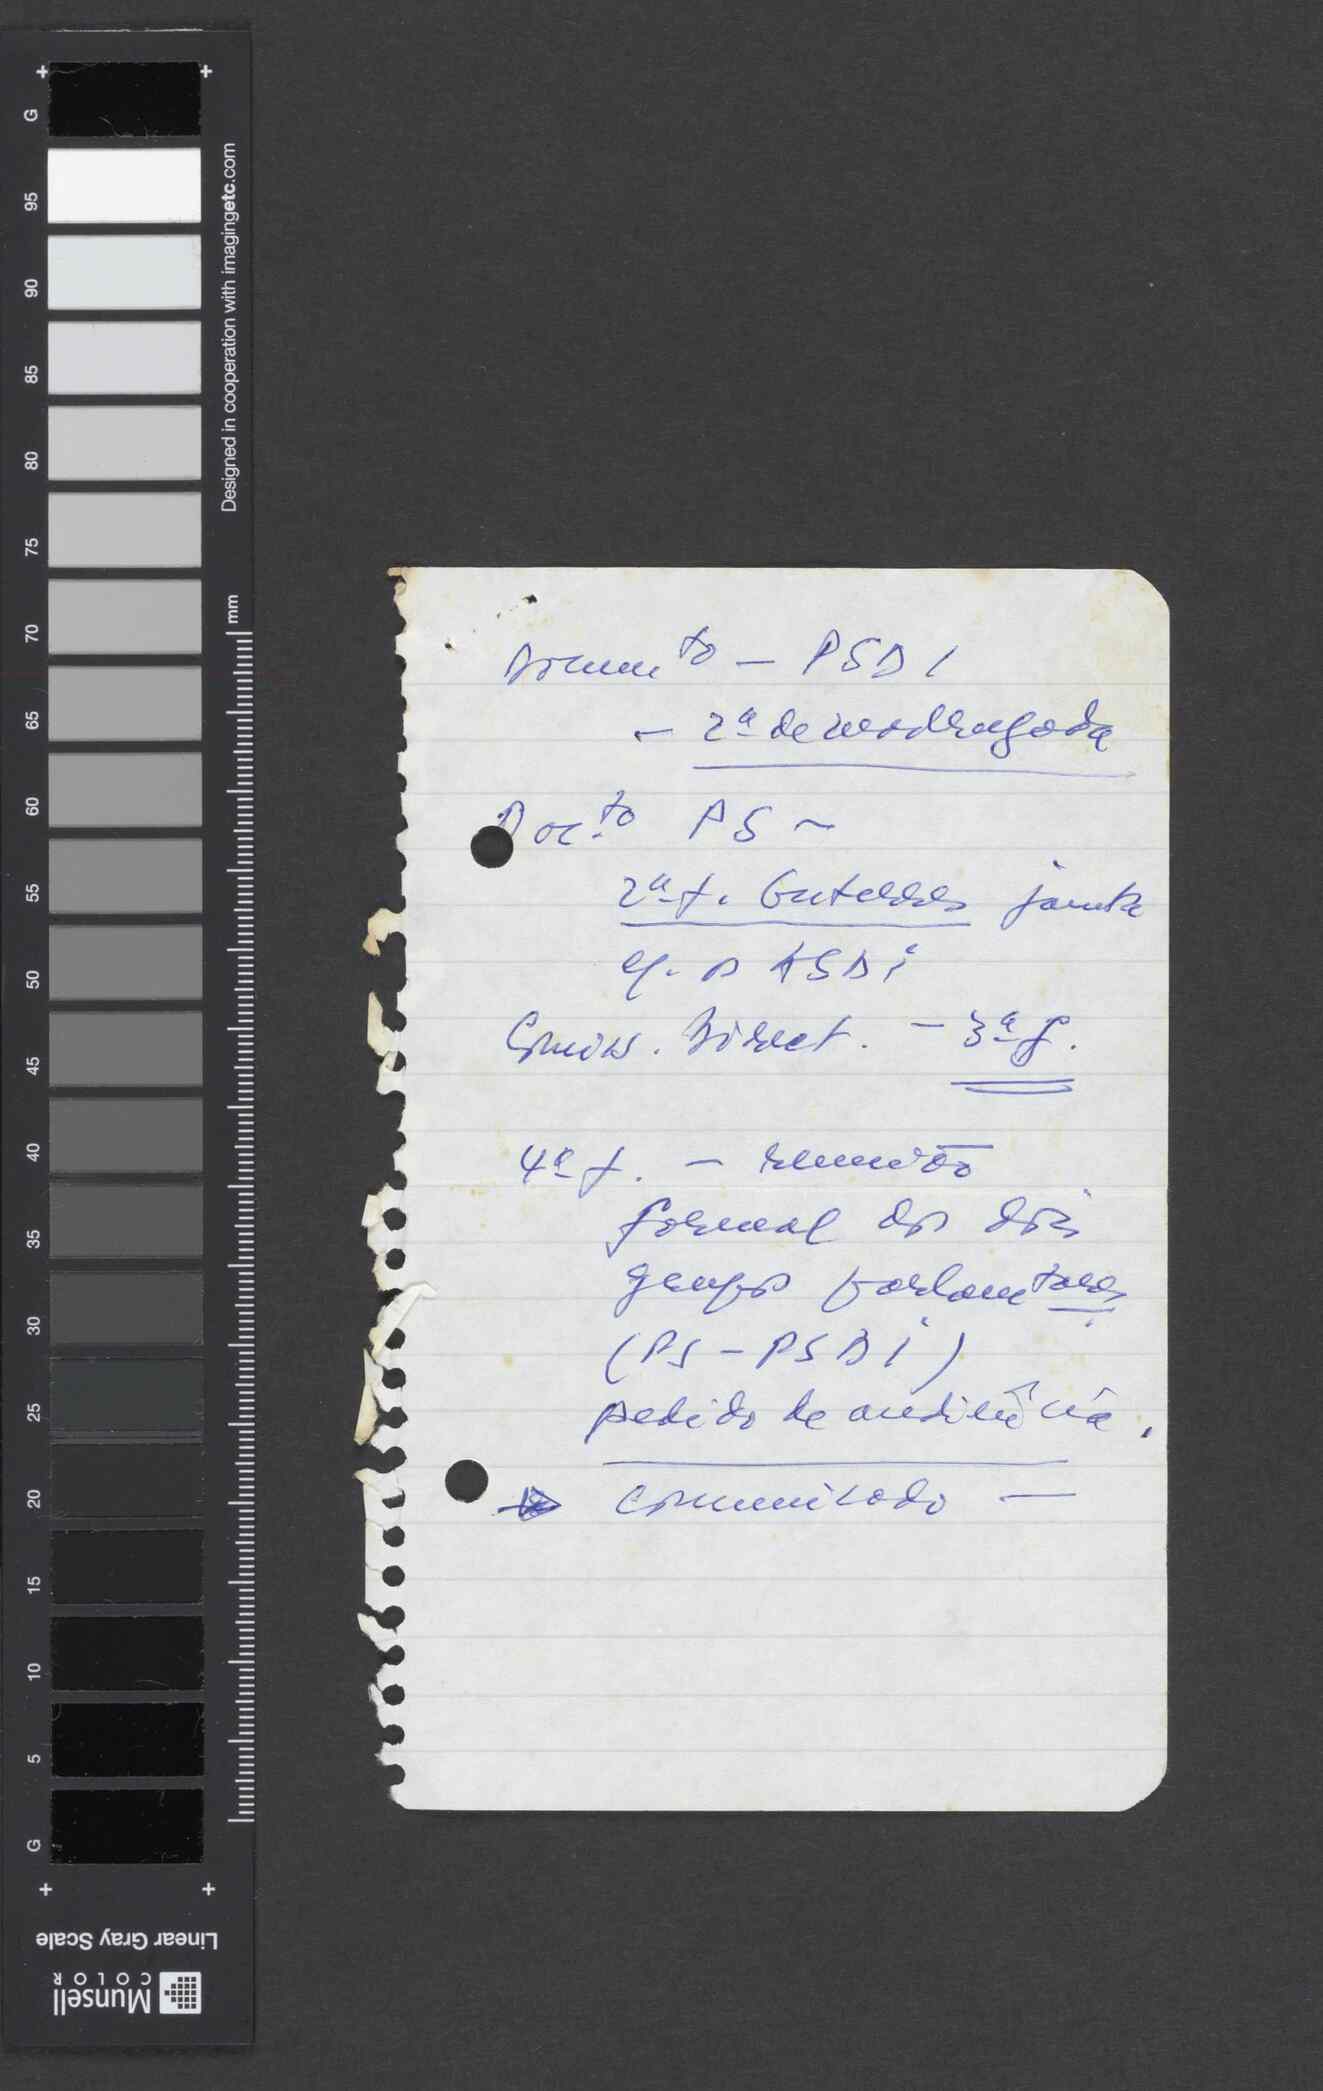 G
95
90
85
80
75
70
65
60
55
50
45
40
35
30
25
20
15
10
5
G
Designed in cooperation with imagingetc.com
mm
Linear Gray Scale
Munsell
COLOR
Documto – PSDI
– 2ª de madrugada
Docto PS –
2ª f. Guterres janta
c/. os ASDi
Comiss. Direct. – 3ª f.
4ª f. – reunião
formal dos dois
grupos parlamtares
(PS – PSDi)
pedido de audiência.
comunicado —